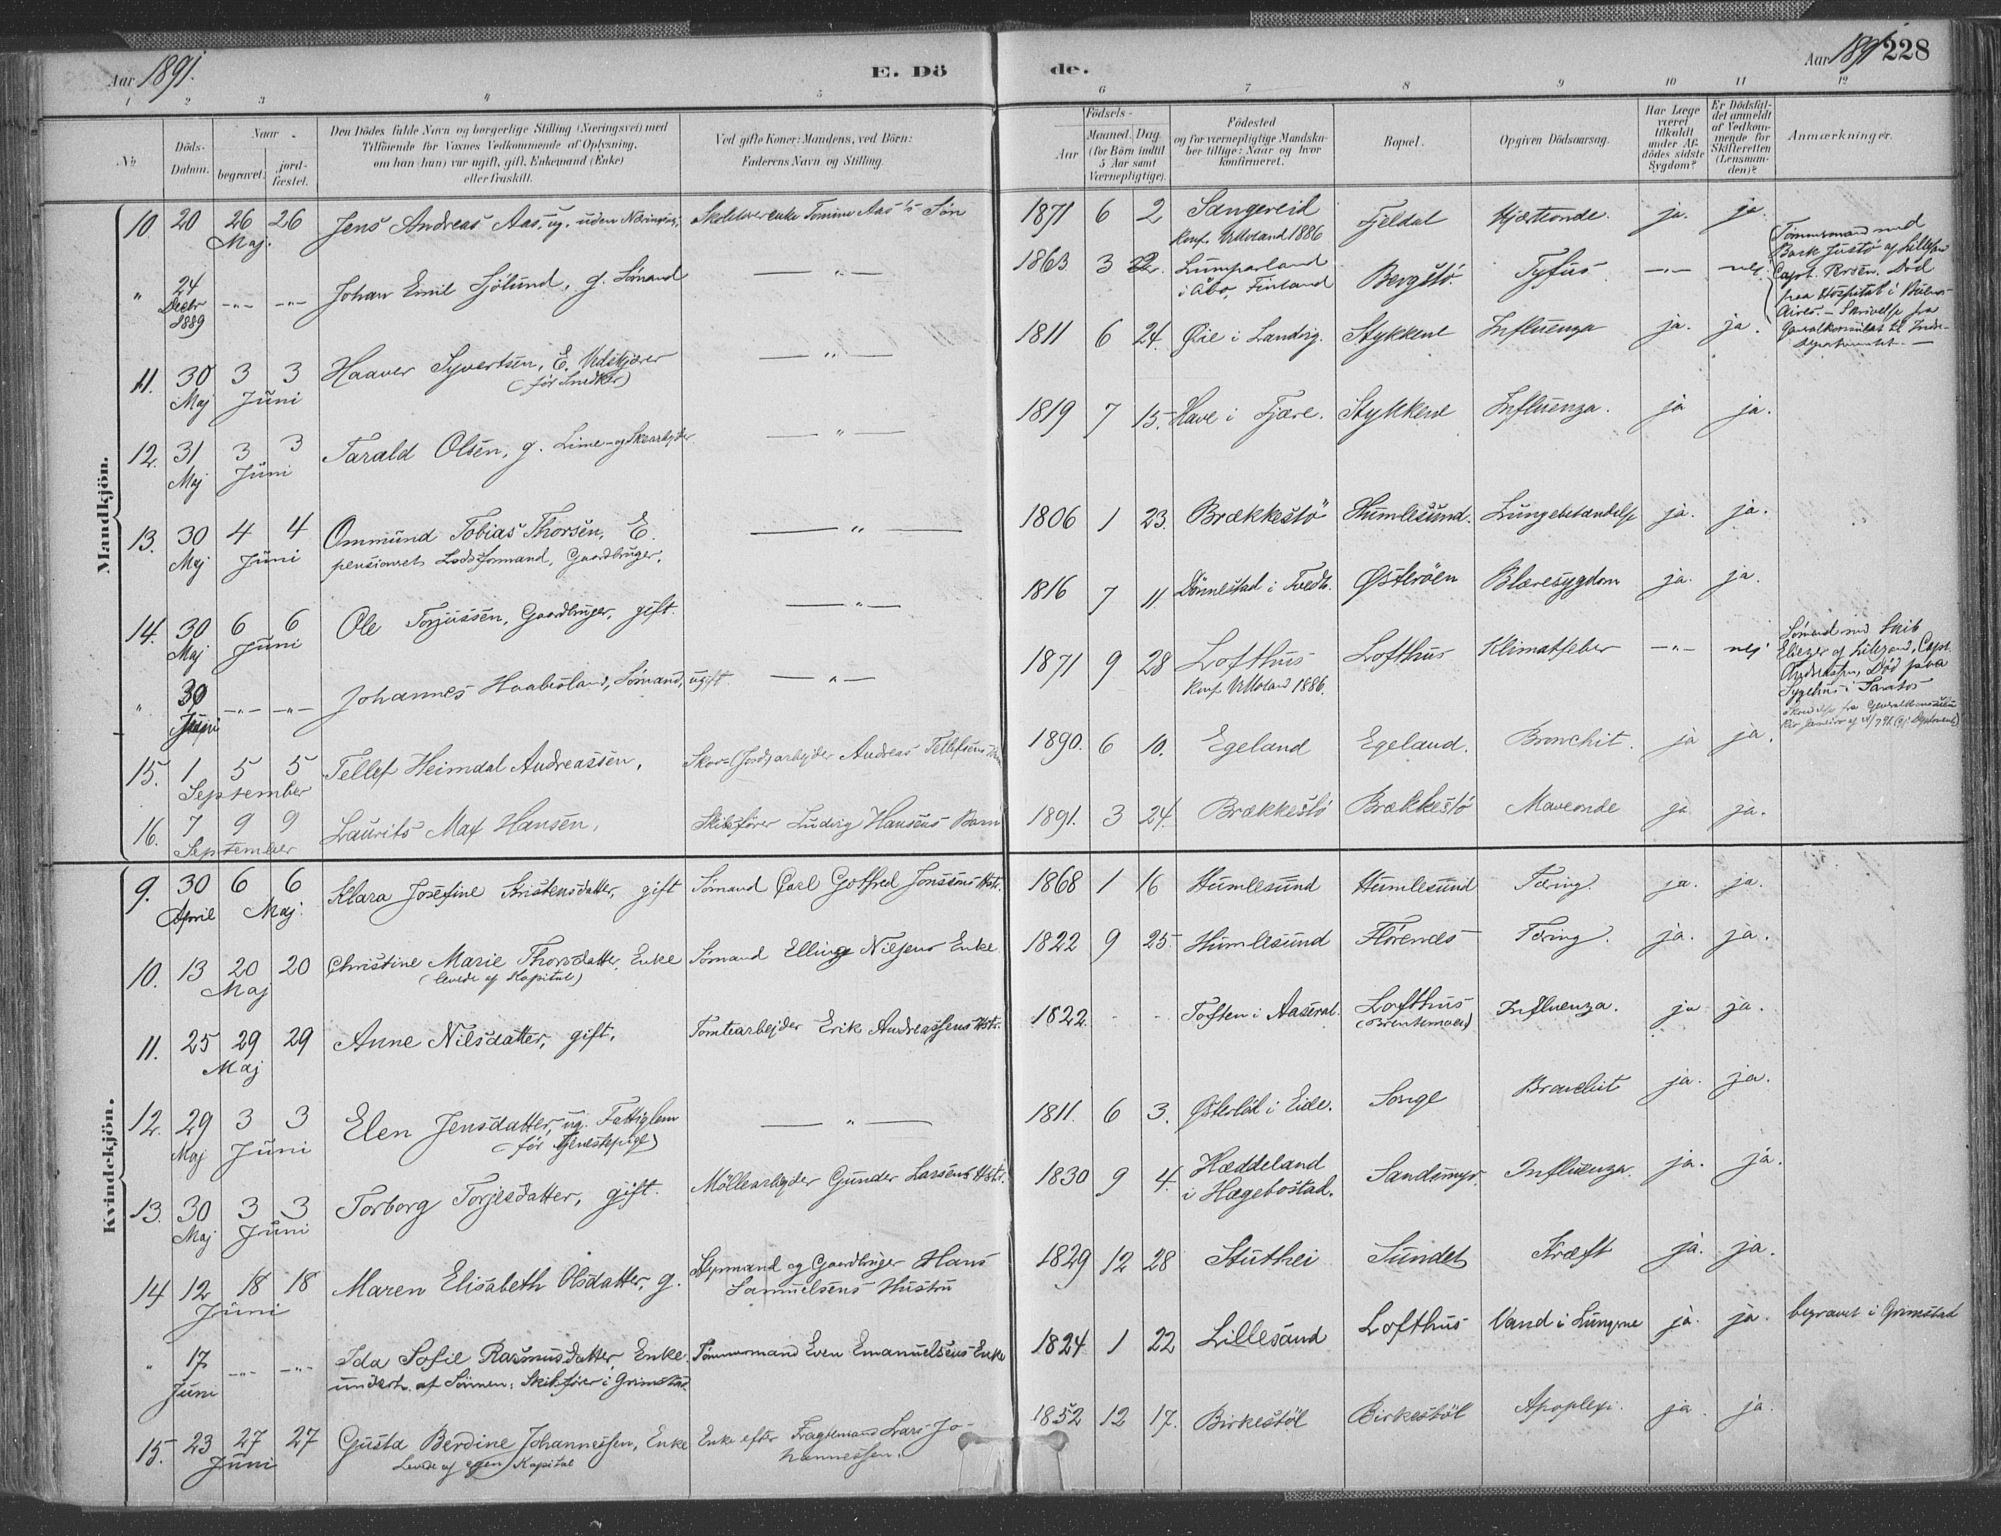 Aar 1891.
E. Dö
de.
Aar 1891
228
1 2 3 4 5 6 7 8 9 10 11 12
No
Döds-Datum.
Naar
begravet.
jord-fæstet.
Den Dödes fulde Navn og borgerlige Stilling (Næringsvei) med
Tilföiende for Voxnes Vedkommende af Oplysning,
om han (hun) var ugift, gift, Enkemand (Enke)
eller fraskilt.
Ved gifte Koner: Mandens, ved Börn:
Faderens Navn og Stilling.
Födsels-
Aar
Maaned. Dag.
(for Börn indtil
5 Aar samt
Værnepligtige).
Födested
og for værnepligtige Mandska-
ber tillige: Naar og hvor
konfirmeret.
Bopæl.
Opgiven Dödsaarsag.
Har Læge
været
tilkaldt
under Af-
dödes sidste
Sygdom?
Er Dödsfal-
det anmeldt
af Vedkom-
mende for
Skifteretten
(Lensman-
den)?
Anmærkninger.
Mandkjön.
10. 20 26 26 Maj. Jens Andreas Aas, ug. uden Næringsvej, Skoleholerenke Tomine Aas's Søn 1871 6 2 Sangereid Konf. V.Moland 1886 Fjeldal Hjerteonde. ja. ja
" 24 Decbr 1889 -"- -"- Johan Emil Sjölund, g. Sömand — " — 1863 3 Lumparland i Åbo, Finland Bergstö. Tyfus -"- nej. Tømmermand med Bark Justö af Lillesand Capt. Død paa Hospital i Buenos-Aires. – Skrivelse fra Generalkonsulat til Indre-departementet. —
11. 30 Maj 3 3 Juni Haaver Syvertsen, E. Vedskjærer (før Snedker) — " — 1811 6 24. Øie i Landvig. Stykkene Influenza ja. ja.
12. 31 Maj 3 3 Juni Tarald Olsen, g. Lime- og Skoarbejder — " — 1819 7 15. Have i Fjære. Stykkene Influenza. ja ja.
13. 30 Maj 4 4 Juni Ommund Tobias Thorsen, E. pensioneret Lodsformand, Gaardbruger. — " — 1806 1 23. Brækkestö Humlesund. Lungebetændelse ja. ja.
14. 30 Maj 6 6 Juni Ole Torjussen, Gaardbruger, gift. — " — 1816 7 11 Dönnestad i Tvedt. Østerøen Blæresygdom ja. ja.
" 30 Juni -"- -"- Johannes Haabesland, Sömand, ugift — " — 1871 9 28 Lofthus Konf. V.Moland 1886. Lofthus Klimatfeber -"- nej Sömand med Skib Eliezer af Lillesand, Capt. Andreassen, Død paa Sygehus i Santos
15. 1 5 5 September Tellef Heimdal Andreassen, Skov-(Jord)arbejder Andreas Tellefsens 1890. 6 10. Egeland Egeland. Bronchit. ja ja.
16. 7 9 9 September Laurits Max Hansen, Skibsfører Ludvig Hansens Barn 1891. 3 24. Brækkestö Brækkestö Maveonde ja ja.
Kvindekjön.
9. 30 April 6 6 Maj. Klara Josefine Kristensdatter, gift Sømand Carl Gotfred Jonsens Hstr. 1868 1 16 Humlesund Humlesund Tæring. ja. ja.
10. 13 20 20 Maj Christine Marie Thorsdatter, Enke (levede af Kapital) Sømand Elling Nilsens Enke 1822 9 25 Humlesund Flörenes Tæring. ja. ja.
11. 25 29 29 Maj Anne Nilsdatter, gift. Tomtearbejder Erik Andreassens Hstr. 1822 - - Toften i Aaseral. Lofthus (Brentemoen) Influenza. ja ja.
12. 29 Maj 3 3 Juni Elen Jensdatter, ug. Fattiglem (før Tjenestepige) — " — 1811. 6 3. Østerlöl i Eide. Songe Bronchit ja. ja.
13. 30 Maj 3 3 Juni Torborg Torjesdatter, gift. Möllearbejder Gunder Larsens Hstr. 1830 9 4. Hæddeland i Hægebostad. Sandsmyr. Influenza. ja. ja.
14 12 18 18 Juni Maren Elisabeth Olsdatter, g. Skipmand og Gaardbruger Hans Samuelsens Hustru 1829 12 28 Stuthei Sundet Kræft ja. ja.
" 17 Juni -"- -"- Ida Sofie Rasmusdatter, Enke underh. af Sønnen: Skibsfører i Grimstad Tømmermand Even Emanuelsens Enke 1824 1 22 Lillesand Lofthus Vand i Lungerne ja. ja. begravet i Grimstad
15. 23 27 27 Juni Gusta Berdine Johannessen, Enke Levede af egen Kapital Enke efter Fragtemand Lars Johannessen. 1852 12 17. Birkestöl Birkestöl Apoplexi. ja ja.